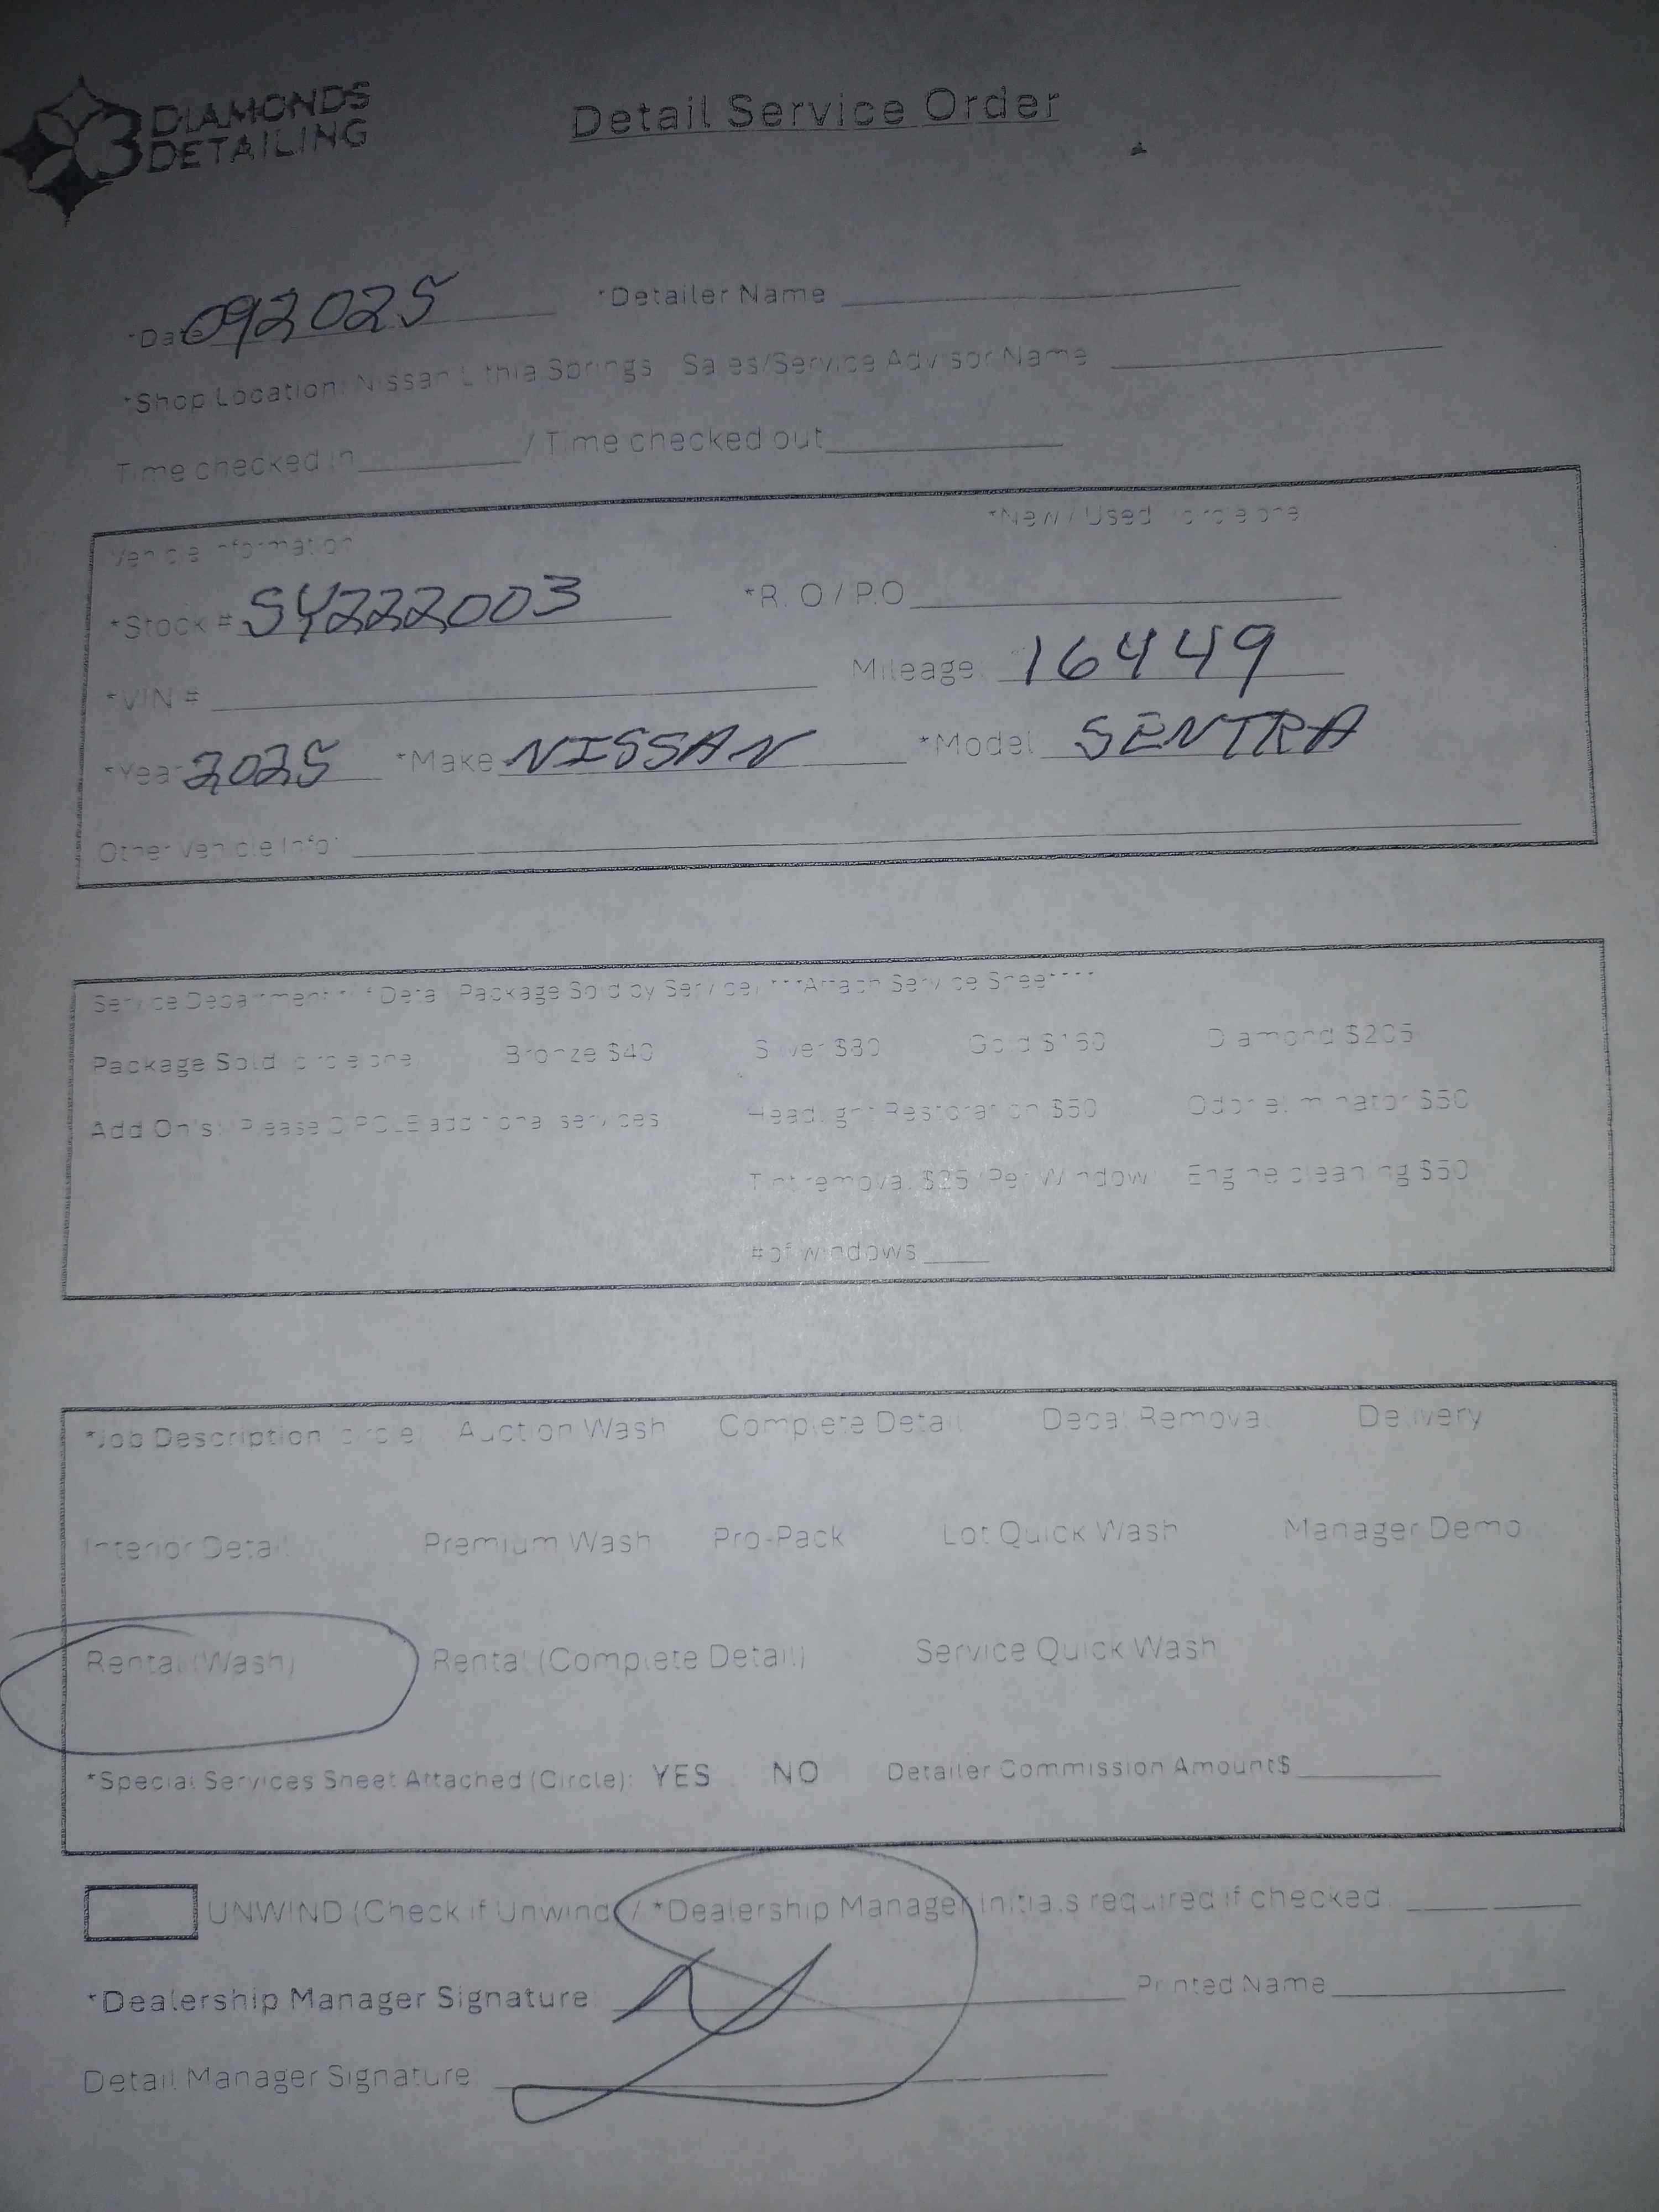 3 DIAMONDS
DETAILING
Detail Service Order
*Date 092025 *Detailer Name
*Shop Location: Nissan Lithia Springs Sales/Service Advisor Name
Time checked in / Time checked out
Vehicle Information *New / Used circle one
*Stock # SY222003 *R.O / P.O
*VIN # Mileage: 16449
*Year 2025 *Make NISSAN *Model SENTRA
Other Vehicle Info:
Service Department Detail Package Sold by Service) ***Attach Service Sheet****
Package Sold circle one Bronze $40 Silver $80 Gold $160 Diamond $205
Add On's: Please CIRCLE additional services Headlight Restoration $50 Odor eliminator $50
Tint removal $25 (Per Window) Engine cleaning $50
# of windows
*Job Description (circle) Auction Wash Complete Detail Decal Removal Delivery
Interior Detail Premium Wash Pro-Pack Lot Quick Wash Manager Demo
Rental (Wash) Rental (Complete Detail) Service Quick Wash
*Special Services Sheet Attached (Circle): YES NO Detailer Commission Amount$
UNWIND (Check if Unwind) / *Dealership Manager Initials required if checked
*Dealership Manager Signature Printed Name
Detail Manager Signature